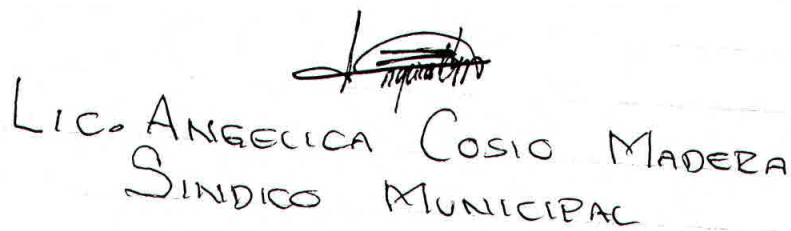 LIC. ANGELICA COSIO MADERA
SINDICO MUNICIPAL